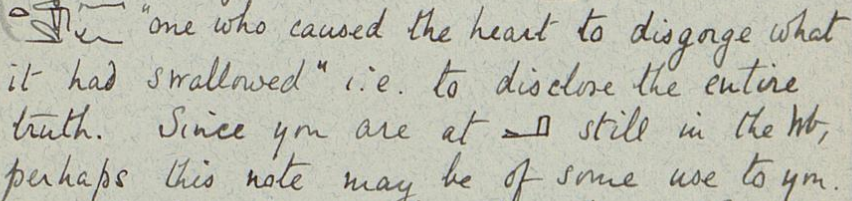 "one who caused the heart to disgorge what
it had swallowed" i.e. to disclose the entire
truth. Since you are at still in the Wb,
perhaps this note may be of some use to you.